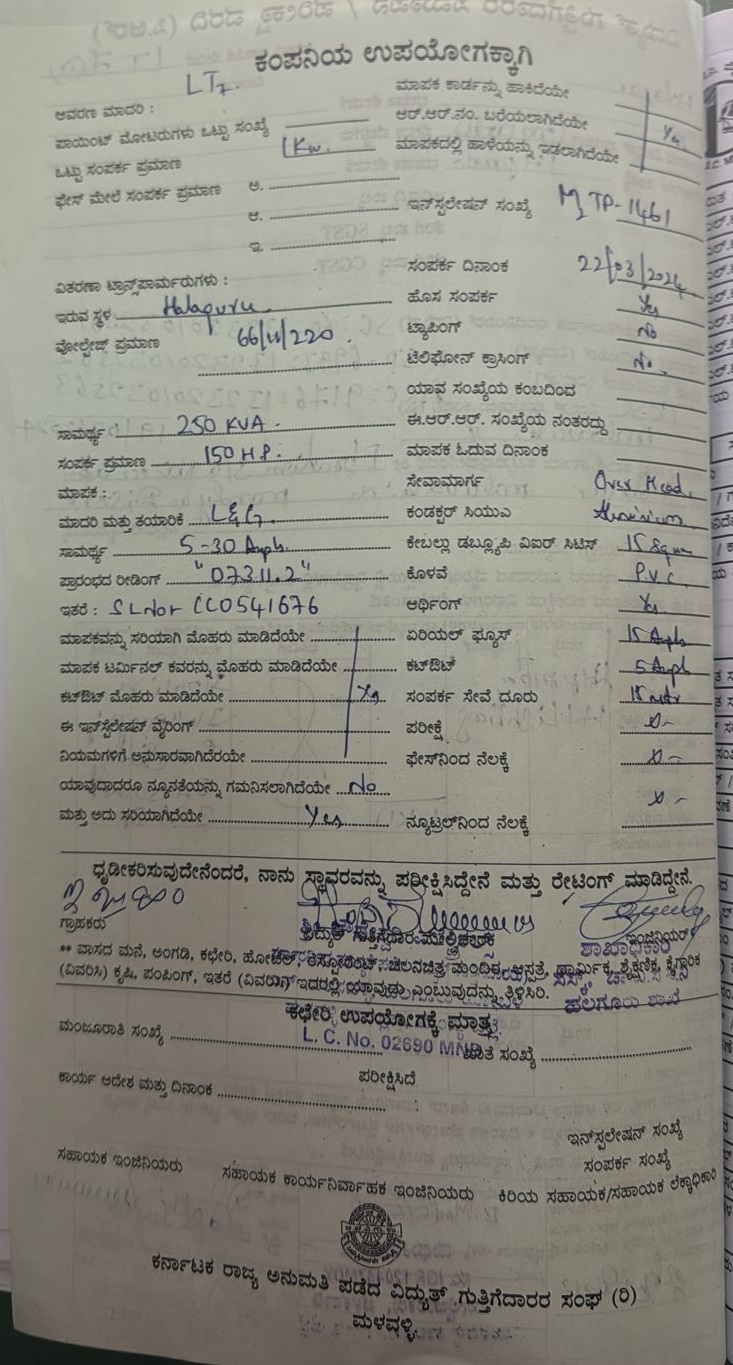 ಕಂಪನಿಯ ಉಪಯೋಗಕ್ಕಾಗಿ
LT7
ಆವರಣ ಮಾದರಿ :
ಮಾಪಕ ಕಾರ್ಡನ್ನು ಹಾಕಿದೆಯೇ
ಪಾಯಿಂಟ್ ಮೋಟರುಗಳು ಒಟ್ಟು ಸಂಖ್ಯೆ
ಆರ್.ಆರ್.ನಂ. ಬರೆಯಲಾಗಿದೆಯೇ Yes
ಒಟ್ಟು ಸಂಪರ್ಕ ಪ್ರಮಾಣ 1Kw
ಮಾಪಕದಲ್ಲಿ ಹಾಳೆಯನ್ನು ಇಡಲಾಗಿದೆಯೇ
ಫೇಸ್ ಮೇಲೆ ಸಂಪರ್ಕ ಪ್ರಮಾಣ ಅ.
ಆ. ಇನ್‌ಸ್ಟಲೇಷನ್ ಸಂಖ್ಯೆ MTP-1461
ಇ.
ವಿತರಣಾ ಟ್ರಾನ್ಸ್‌ಪಾರ್ಮರುಗಳು :
ಸಂಪರ್ಕ ದಿನಾಂಕ 22/03/2024
ಇರುವ ಸ್ಥಳ Halaguru
ಹೊಸ ಸಂಪರ್ಕ Yes
ವೋಲ್ಟೇಜ್ ಪ್ರಮಾಣ 66/11/220
ಟ್ಯಾಪಿಂಗ್ No
ಟೆಲಿಫೋನ್ ಕ್ರಾಸಿಂಗ್ No
ಯಾವ ಸಂಖ್ಯೆಯ ಕಂಬದಿಂದ
ಸಾಮರ್ಥ್ಯ 250 KVA
ಈ.ಆರ್.ಆರ್. ಸಂಖ್ಯೆಯ ನಂತರದ್ದು
ಸಂಪರ್ಕ ಪ್ರಮಾಣ 150 H.P.
ಮಾಪಕ ಓದುವ ದಿನಾಂಕ
ಮಾಪಕ :
ಸೇವಾಮಾರ್ಗ Over Head
ಮಾದರಿ ಮತ್ತು ತಯಾರಿಕೆ L&G
ಕಂಡಕ್ಟರ್ ಸಿಯುಎ Aluminium
ಸಾಮರ್ಥ್ಯ 5-30 Amph
ಕೇಬಲ್ಲು ಡಬ್ಲ್ಯೂಪಿ ವಿಐಆರ್ ಸಿಟಿಸ್ 15 Sqmm
ಪ್ರಾರಂಭದ ರೀಡಿಂಗ್ "07311.2"
ಕೊಳವೆ P.V.C.
ಇತರೆ : SLNor CC0541676
ಆರ್ಥಿಂಗ್ Yes
ಮಾಪಕವನ್ನು ಸರಿಯಾಗಿ ಮೊಹರು ಮಾಡಿದೆಯೇ
ಏರಿಯಲ್ ಫ್ಯೂಸ್ 15 Amph
ಮಾಪಕ ಟರ್ಮಿನಲ್ ಕವರನ್ನು ಮೊಹರು ಮಾಡಿದೆಯೇ
ಕಟ್‌ಔಟ್ 5 Amph
ಕಟ್‌ಔಟ್ ಮೊಹರು ಮಾಡಿದೆಯೇ Yes
ಸಂಪರ್ಕ ಸೇವೆ ದೂರು 15 mtr
ಈ ಇನ್‌ಸ್ಟಲೇಷನ್ ವೈರಿಂಗ್
ಪರೀಕ್ಷೆ
ನಿಯಮಗಳಿಗೆ ಅನುಸಾರವಾಗಿದೆರಯೇ
ಫೇಸ್‌ನಿಂದ ನೆಲಕ್ಕೆ
ಯಾವುದಾದರೂ ನ್ಯೂನತೆಯನ್ನು ಗಮನಿಸಲಾಗಿದೆಯೇ No
ಮತ್ತು ಅದು ಸರಿಯಾಗಿದೆಯೇ Yes
ನ್ಯೂಟ್ರಲ್‌ನಿಂದ ನೆಲಕ್ಕೆ
ಧೃಡೀಕರಿಸುವುದೇನೆಂದರೆ, ನಾನು ಸ್ಥಾವರವನ್ನು ಪರೀಕ್ಷಿಸಿದ್ದೇನೆ ಮತ್ತು ರೇಟಿಂಗ್ ಮಾಡಿದ್ದೇನೆ.
ಗ್ರಾಹಕರು ವಿದ್ಯುತ್ ಗುತ್ತಿಗೆದಾರ ಇಂಜಿನಿಯರ್
ಶಾಖಾಧಿಕಾರಿ
** ವಾಸದ ಮನೆ, ಅಂಗಡಿ, ಕಛೇರಿ, ಹೋಟೆಲ್, ರೆಸ್ಟೂರೆಂಟ್, ಚಲನಚಿತ್ರ ಮಂದಿರ, ಆಸ್ಪತ್ರೆ, ಧಾರ್ಮಿಕ, ಶೈಕ್ಷಣಿಕ, ಕೈಗಾರಿಕೆ
(ವಿವರಿಸಿ) ಕೃಷಿ, ಪಂಪಿಂಗ್, ಇತರೆ (ವಿವರಿಸಿ) ಇದರಲ್ಲಿ ಯಾವುದು ಎಂಬುವುದನ್ನು ತಿಳಿಸಿರಿ.
ಹಲಗೂರು ಶಾಖೆ
ಕಛೇರಿ ಉಪಯೋಗಕ್ಕೆ ಮಾತ್ರ
L. C. No. 02690 MND
ಮಂಜೂರಾತಿ ಸಂಖ್ಯೆ ಖಾತೆ ಸಂಖ್ಯೆ
ಪರೀಕ್ಷಿಸಿದೆ
ಕಾರ್ಯ ಆದೇಶ ಮತ್ತು ದಿನಾಂಕ
ಇನ್‌ಸ್ಟಲೇಷನ್ ಸಂಖ್ಯೆ
ಸಂಪರ್ಕ ಸಂಖ್ಯೆ
ಸಹಾಯಕ ಇಂಜಿನಿಯರು ಸಹಾಯಕ ಕಾರ್ಯನಿರ್ವಾಹಕ ಇಂಜಿನಿಯರು ಕಿರಿಯ ಸಹಾಯಕ/ಸಹಾಯಕ ಲೆಕ್ಕಾಧಿಕಾರಿ
ಕರ್ನಾಟಕ ರಾಜ್ಯ ಅನುಮತಿ ಪಡೆದ ವಿದ್ಯುತ್ ಗುತ್ತಿಗೆದಾರರ ಸಂಘ (ರಿ)
ಮಳವಳ್ಳಿ.